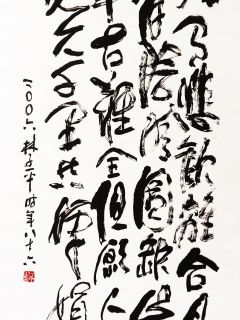 有悲歡離合月
有陰晴圓缺此
事古難全但願人
長久千里共嬋娟
二〇〇六 林 平 時年八十六